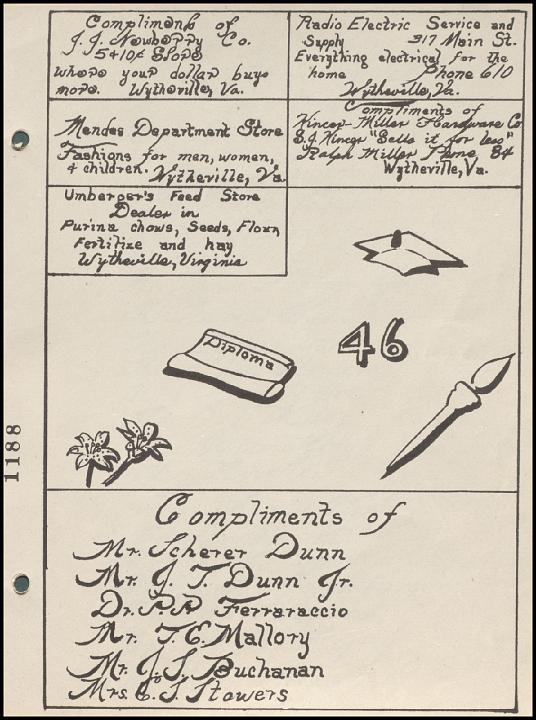 Compliments of
J. J. Newberry Co.
5&10¢ Store
Where your dollar buys
more. Wytheville, Va.
Radio Electric Service and
Supply 317 Main St.
Everything electrical for the
home Phone 610
Wytheville, Va.
Mendes Department Store
Fashions for men, women,
& children. Wytheville, Va.
Compliments of
Kincer-Miller Hardware Co
S.J. Kincer "Sells it for less"
Ralph Miller Phone 84
Wytheville, Va.
Umberger's Feed Store
Dealer in
Purina chows, Seeds, Flour,
Fertilize and hay
Wytheville, Virginia
Diploma
46
1188
Compliments of
Mr. Scherer Dunn
Mr. J. T. Dunn Jr.
Dr. P.P. Ferraraccio
Mr. T. E. Mallory
Mr. J. S. Buchanan
Mrs. Stowers